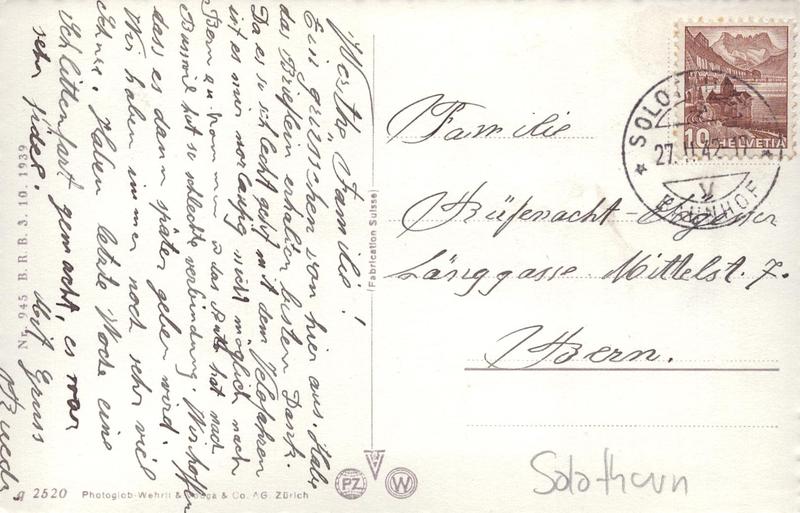 Werthe Familie!
Ein grüsschen von hier aus. Habe
das Brieflein erhalten besten Dank.
Da es so schlecht geht mit dem Velofahren
ist es mir vorläufig nicht möglich nach
Bern zu kommen u das Auto hat nach
Busswil hat so schlechte verbindung. Wir hoffen
dass es dann später gehen wird.
Wir haben immer noch sehr viel
Schnee. Haben letzte Woche eine
Schlittenfart gemacht, es war
sehr fidel.
Mit Gruss
Nr. 945 B. R. B. 3. 10. 1939
g 2520 Photoglob-Wehrli & & Co. AG. Zürich
(Fabrication Suisse)
PZ W
SOLOTHURN
27. II. 42
V
BAHNHOF
10 HELVETIA
Familie
Rüfenacht-
Länggasse Mittelst. 7.
Bern.
Solothurn